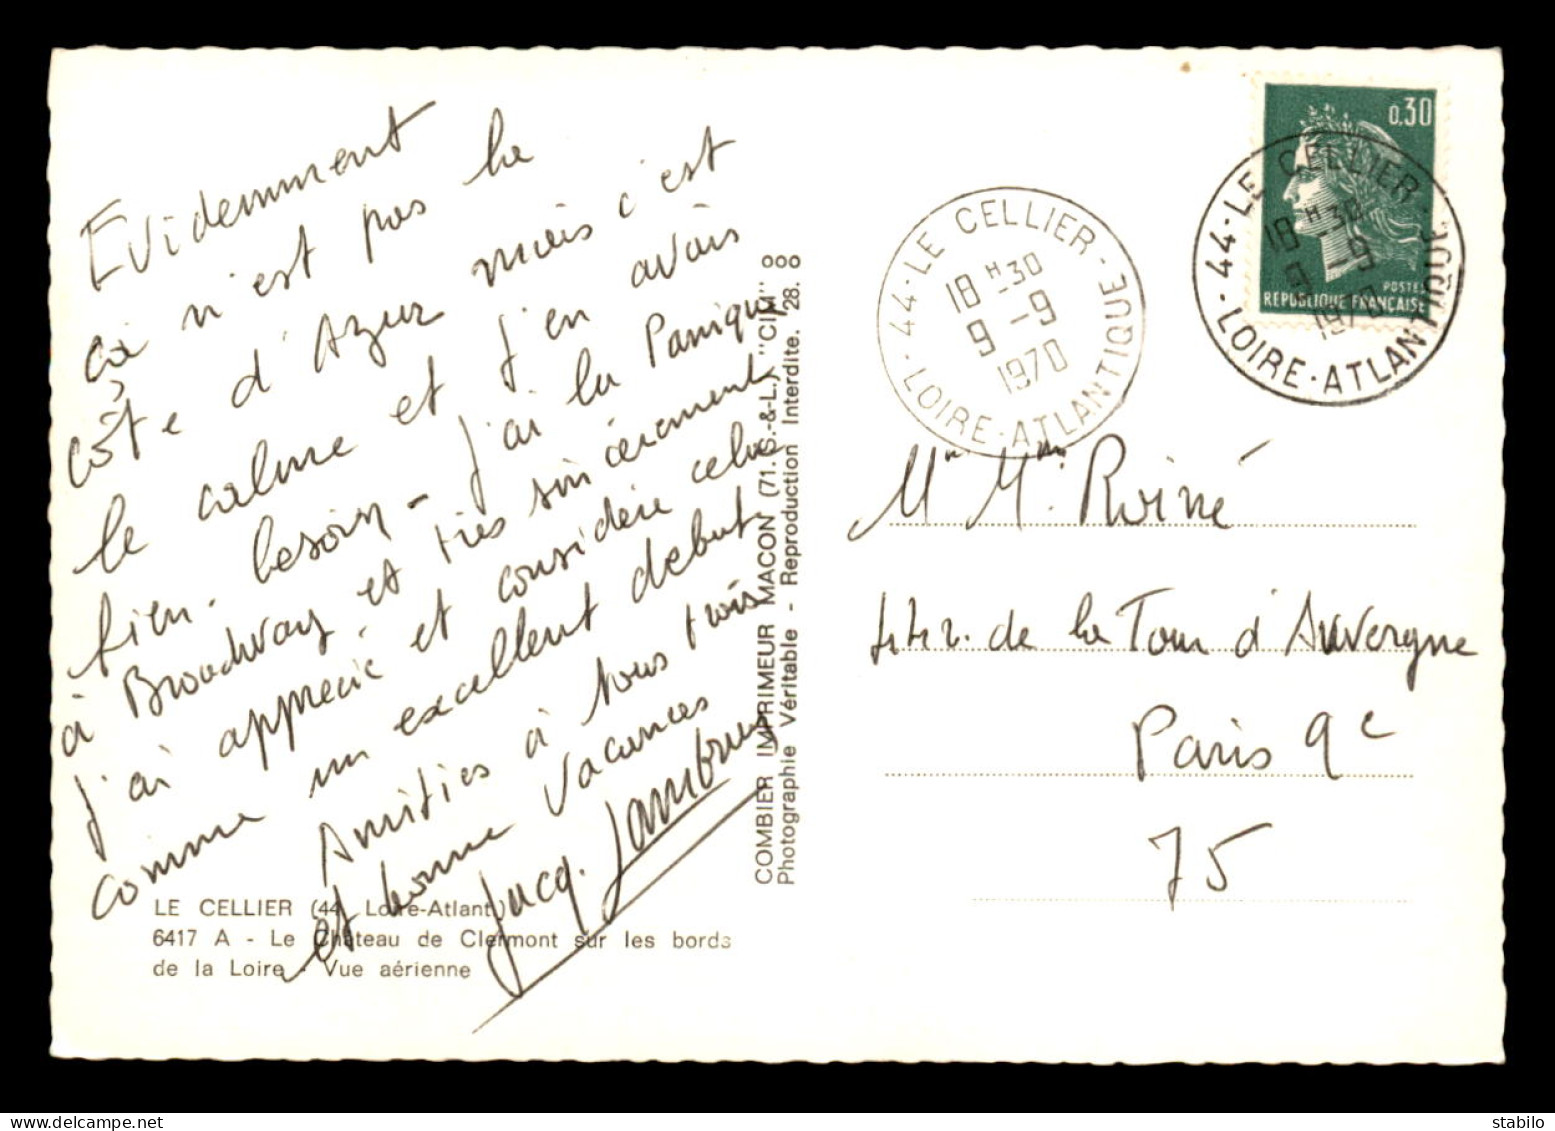 Evidemment
ça n'est pas la
côte d'Azur mais c'est
le calme et j'en avais
bien besoin - j'ai lu Panique
à Broadway et très sincèrement
j'ai apprécié et considère celui
comme un excellent debut
Amitiés à tous trois
et bonne vacances
Jacq.
LE CELLIER (44. Loire-Atlant.)
6417 A - Le Château de Clermont sur les bords
de la Loire - Vue aérienne
COMBIER IMPRIMEUR MACON (71. S.-&-L.) "CIM"
Photographie Véritable - Reproduction Interdite. 28.
44 - LE CELLIER - LOIRE-ATLANTIQUE
18 H 30
9 - 9
1970
0,30
POSTES
REPUBLIQUE FRANÇAISE
44 - LE CELLIER - LOIRE-ATLANTIQUE
18 H 30
9 - 9
1970
Mr Mme
de la Tour d'Auvergne
Paris 9e
75
www.delcampe.net
stabilo